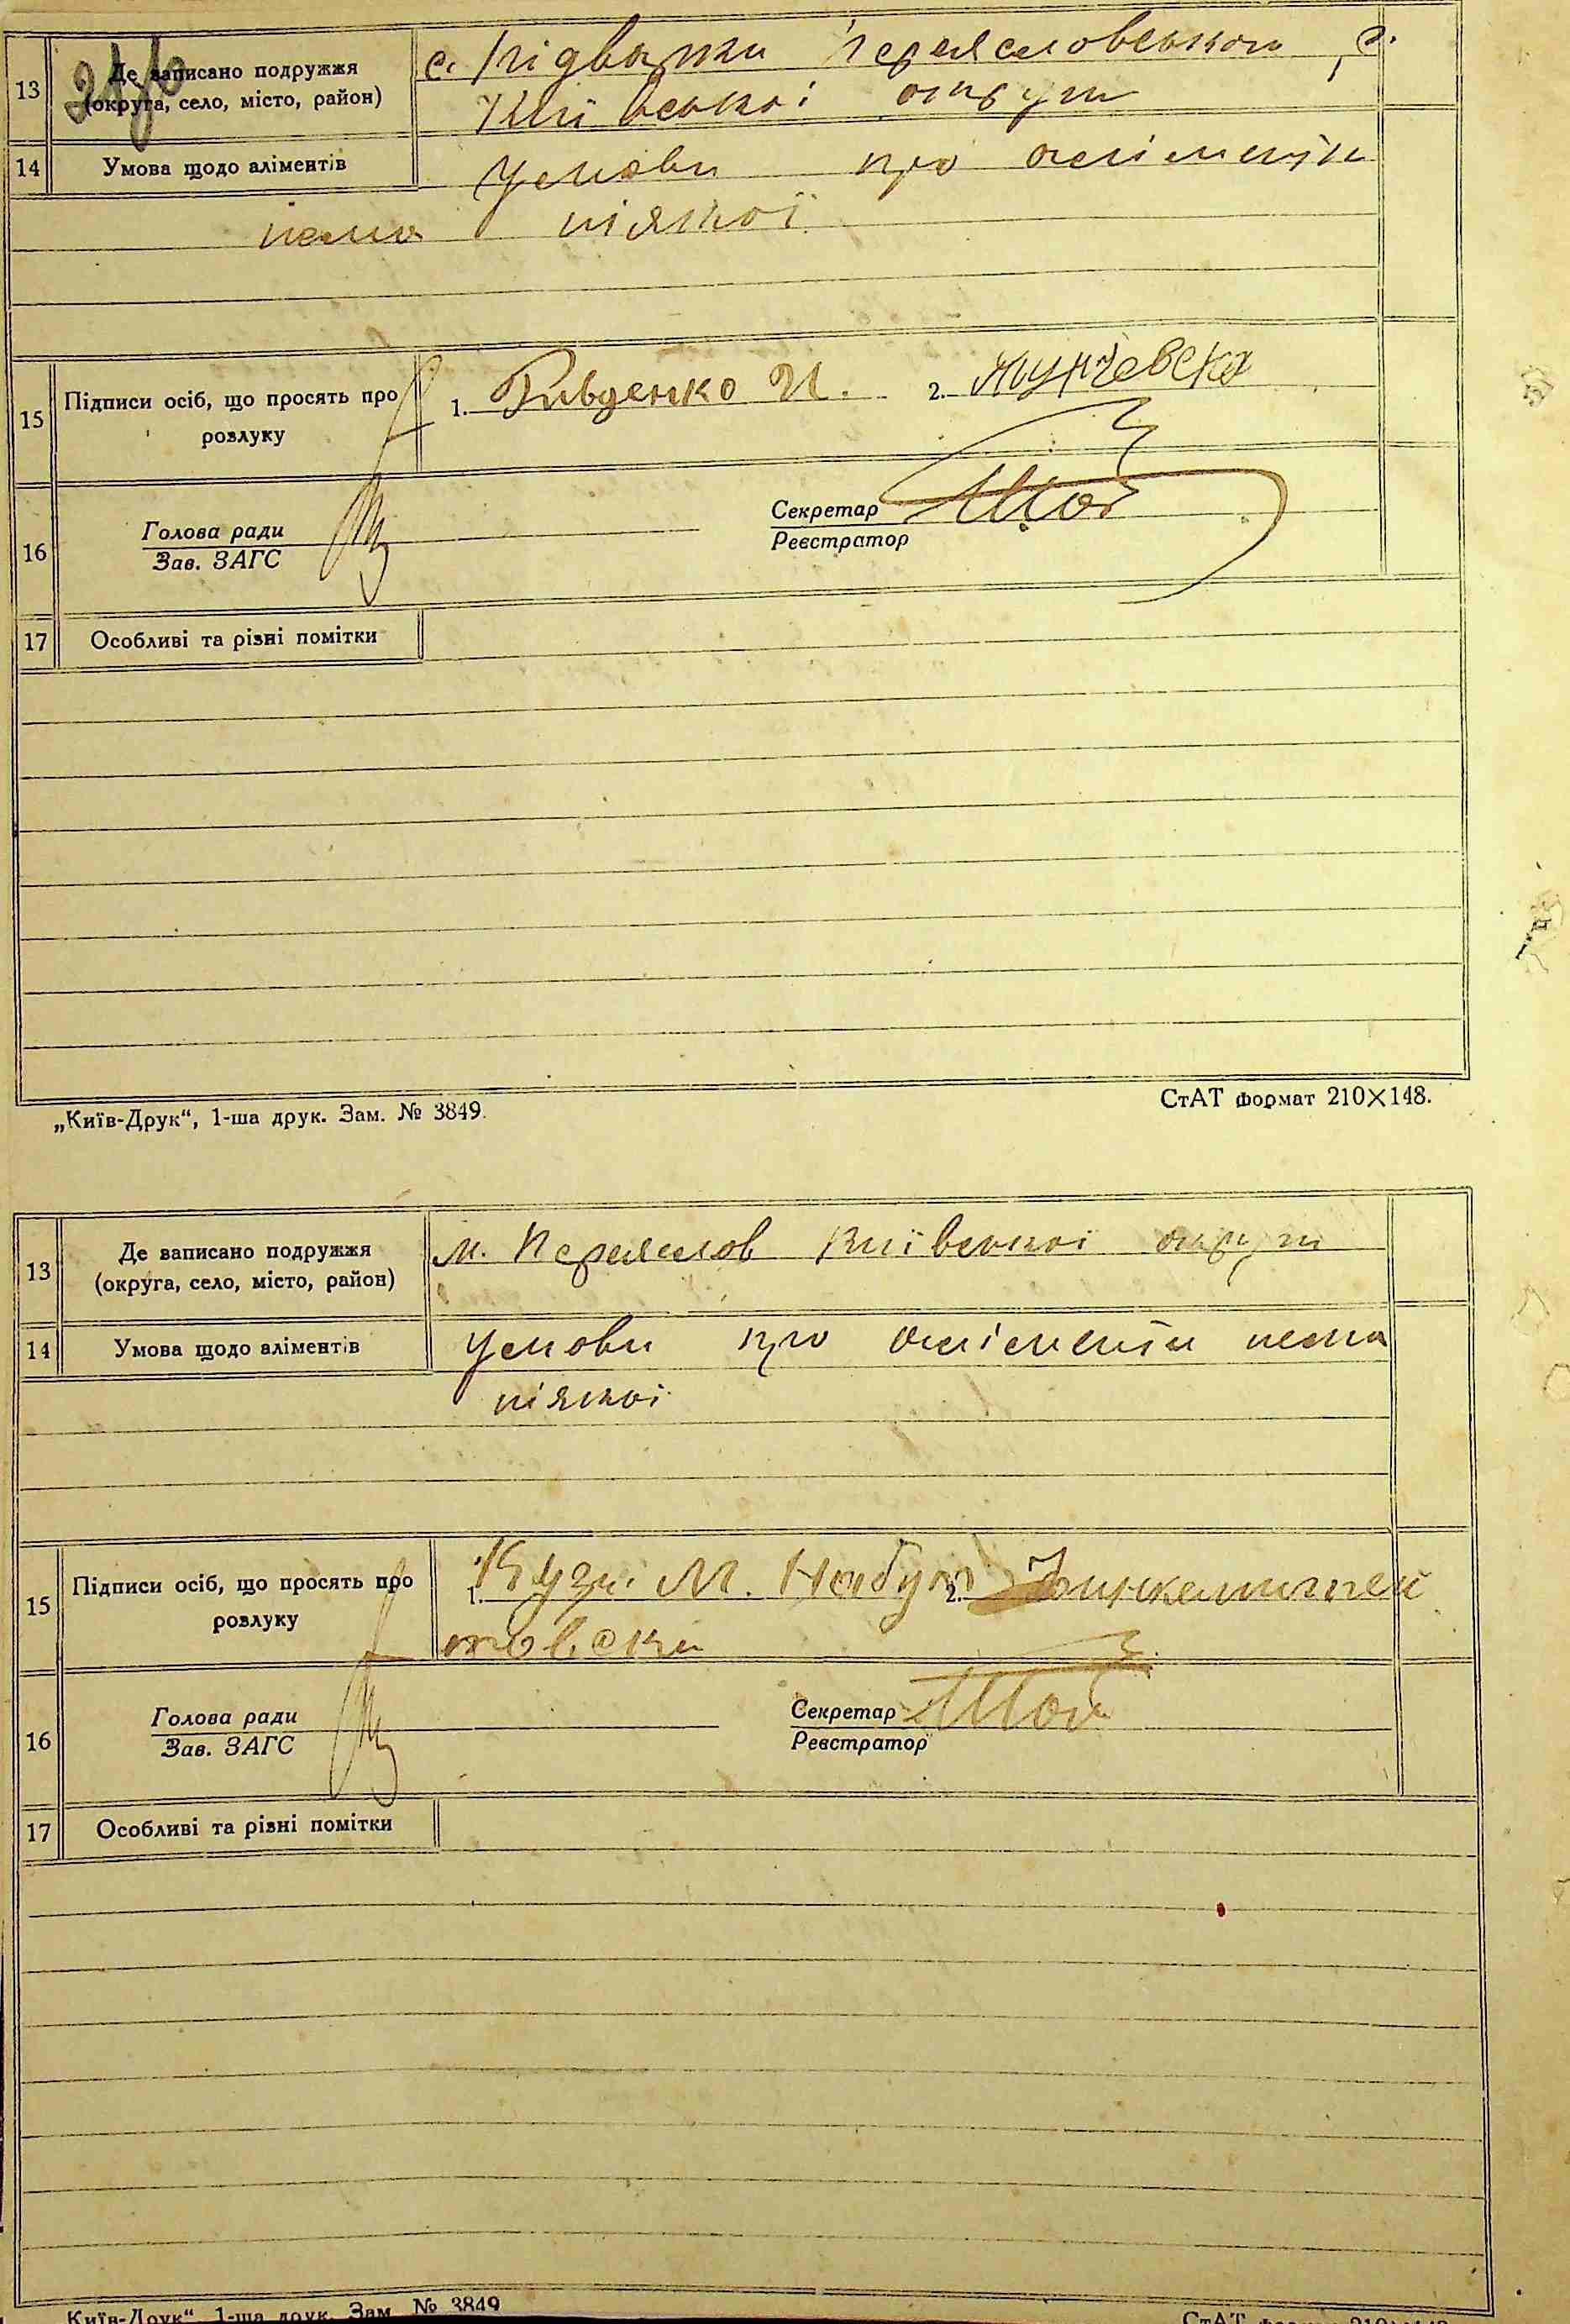 13 Де записано подружжя (округа, село, місто, район) с. Підварки Переяславського р.
Київської округи
14 Умова щодо аліментів Умови про аліменти
нема ніякої
15 Підписи осіб, що просять про розлуку 1. Південко И. 2.
16 Голова ради Зав. ЗАГС Секретар Реєстратор
17 Особливі та різні помітки
„Київ-Друк“, 1-ша друк. Зам. № 3849. СтАТ формат 210×148.
13 Де записано подружжя (округа, село, місто, район) м. Переяслов Київської округи
14 Умова щодо аліментів Умови про аліменти нема
ніякої
15 Підписи осіб, що просять про розлуку 1. М. 2.
16 Голова ради Зав. ЗАГС Секретар Реєстратор
17 Особливі та різні помітки
Київ-Друк“, 1-ша друк. Зам. № 3849